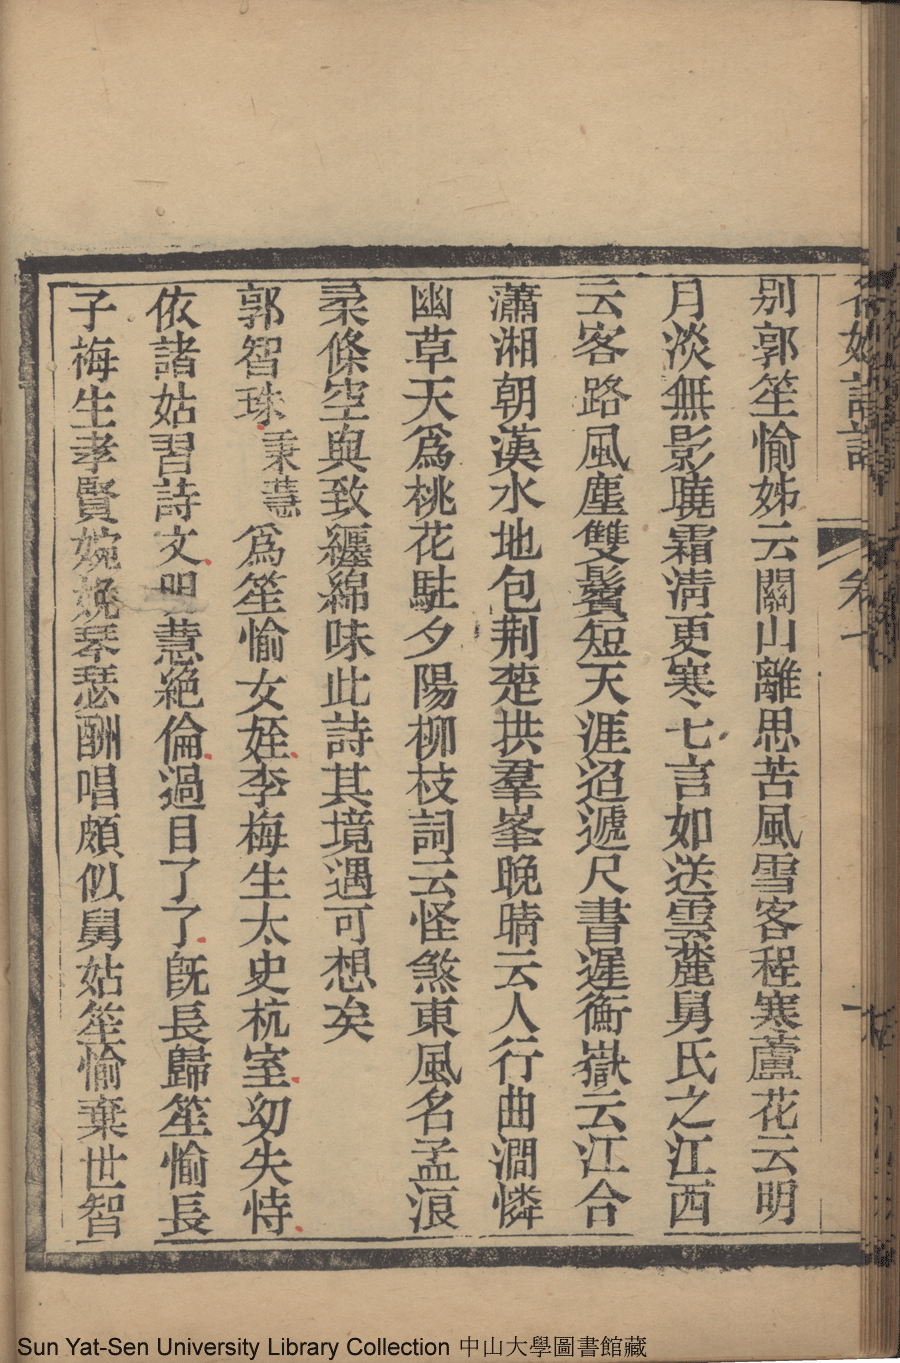 別郭笙愉姊云關山離思苦風雪客程寒蘆花云明
月淡無影曉霜淸更寒七言如送雲麓舅氏之江西
云客路風塵雙鬢短天涯迢遞尺書遲衡嶽云江合
瀟湘朝漢水地包荆楚拱羣峯晚晴云人行曲澗憐
幽草天爲桃花駐夕陽柳枝詞云怪煞東風名孟浪
柔條空與致纏綿味此詩其境遇可想矣
郭智珠秉慧爲笙愉女姪李梅生太史杭室幼失恃
依諸姑習詩文明慧絕倫過目了了旣長歸笙愉長
子梅生孝賢婉娩琴瑟酬唱頗似舅姑笙愉棄世智
Sun Yat-Sen University Library Collection 中山大學圖書館藏